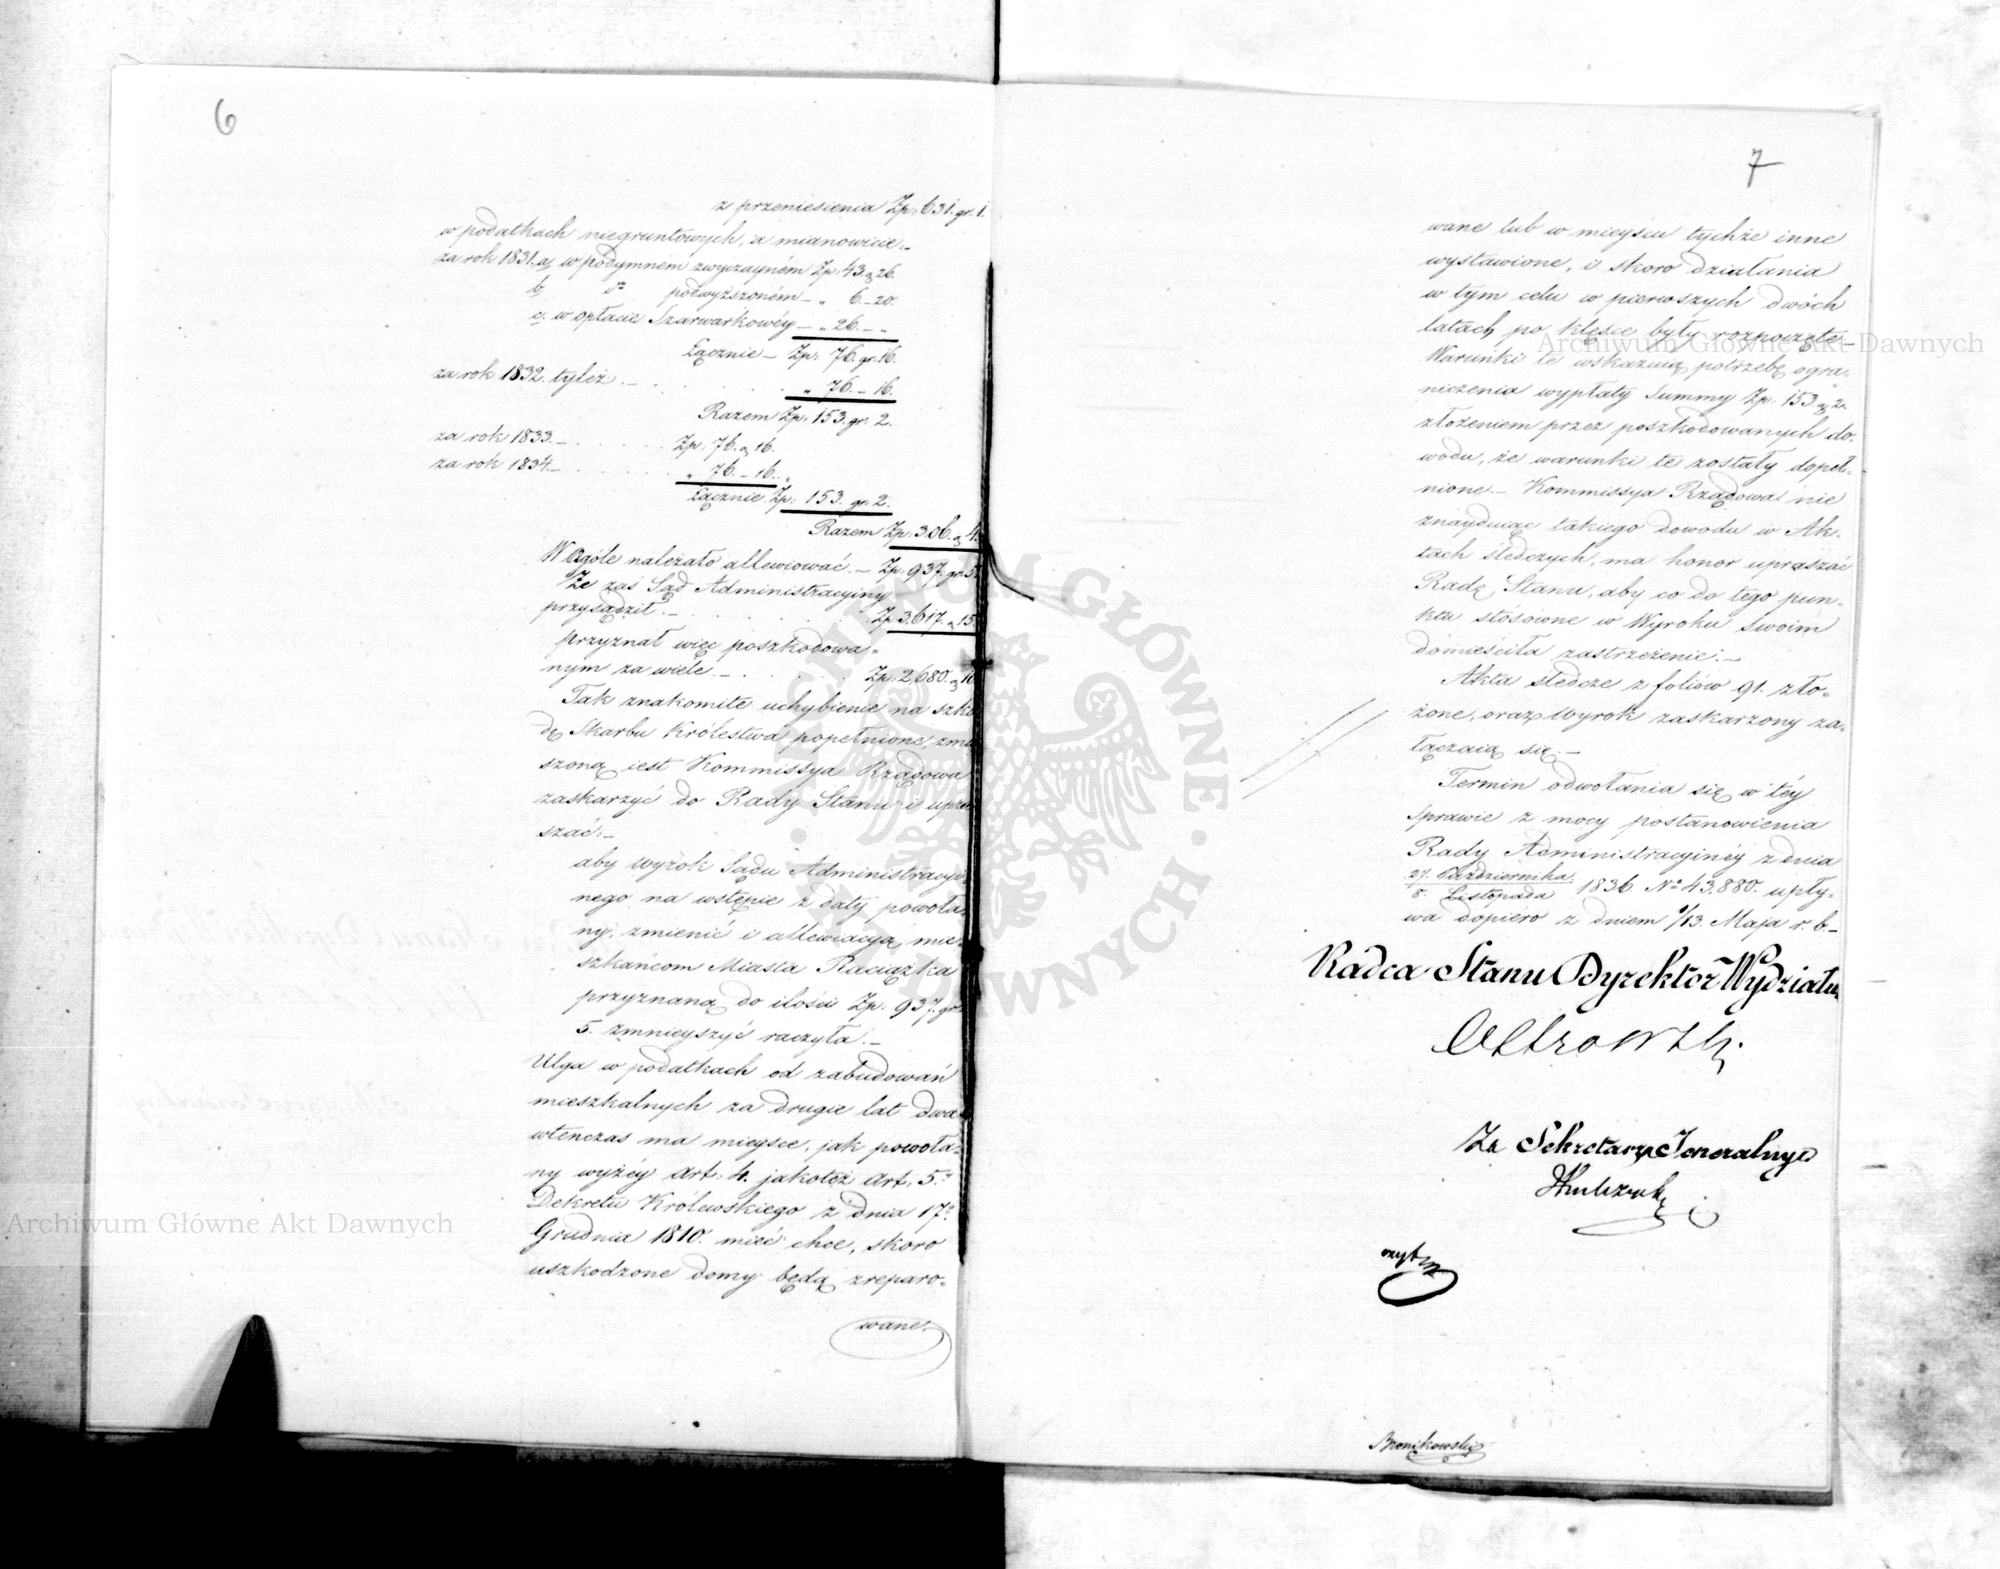 6
z przeniesienia Zp: 631. gr. 1.
w podatkach niegruntowych, a mianowicie.-
za rok 1831. a, w podymnem zwyczayném Zp: 43. g 26.
b, do podwyższoném - " 6. - 20.
c, w opłacie Szarwarkowéy - " 26. - "
Łącznie - Zp: 76. gr. 16.
za rok 1832. tyleż. - " 76. - 16.
Razem Zp: 153. gr. 2.
za rok 1833. - Zp. 76. g 16.
za rok 1834. - " 76. - 16. "
Łącznie Zp: 153. gr. 2.
Razem Zp: 306. g 4.
W Ogóle należało allewiować. - Zp: 937. gr. 5.
Że zaś Sąd Administracyiny
przysądził. - Zp 3,617. g 15.
przyznał więc poszkodowa-
nym za wiele. - Zp: 2,680. g 10
Tak znakomite uchybienie na szko
dę Skarbu Królestwa popełnione, zmu
szoną iest Kommissya Rządowa
zaskarzyć do Rady Stanu i upra
szać: -
aby wyrok Sądu Administracyi
nego na wstępie z daty powoła-
ny, zmienić i allewiacyą mie-
szkańcom Miasta Raciążka
przyznaną do ilości Zp: 937. gr.
5. zmnieyszyć raczyła. -
Ulga w podatkach od zabudowań
mieszkalnych za drugie lat dwa
wtenczas ma mieysce, jak powoła-
ny wyżéy Art: 4. jakoteż Art. 5.
Dekretu Królewskiego z dnia 17o
Grudnia 1810. mieć chce, skoro
uszkodzone domy będą zreparo-
wane
7
wane lub w mieyscu tychże inne
wystawione, i skoro działania
w tym celu w pierwszych dwóch
latach po klęsce były rozpoczęte -
Warunki te wskazuią potrzebę ogra-
niczenia wypłaty Summy Zp. 153 g 2.
złożeniem przez poszkodowanych do-
wodu, że warunki te zostały dopeł-
nione. - Kommissya Rządowa nie
znayduiąc takiego dowodu w Ak-
tach śledczych, ma honor upraszać
Radę Stanu, aby co do tego pun-
ktu stósowne w Wyroku swoim
domieściła zastrzeżenie. -
Akta śledcze z foliów 91. zło-
żone, oraz Wyrok zaskarzony za-
łączaią się. -
Termin odwołania się w téy
sprawie z mocy postanowienia
Rady Administracyinéy z dnia
27. Października / 8. Listopada 1836 No 43,880. upły-
wa dopiéro z dniem 1/13. Maja r. b. -
Radca Stanu Dyrektor Wydziału
Ostrowski.
Za Sekretarza Jeneralnego
Bronikowski
Archiwum Główne Akt Dawnych
Archiwum Główne Akt Dawnych
ARCHIWUM GŁÓWNE AKT DAWNYCH